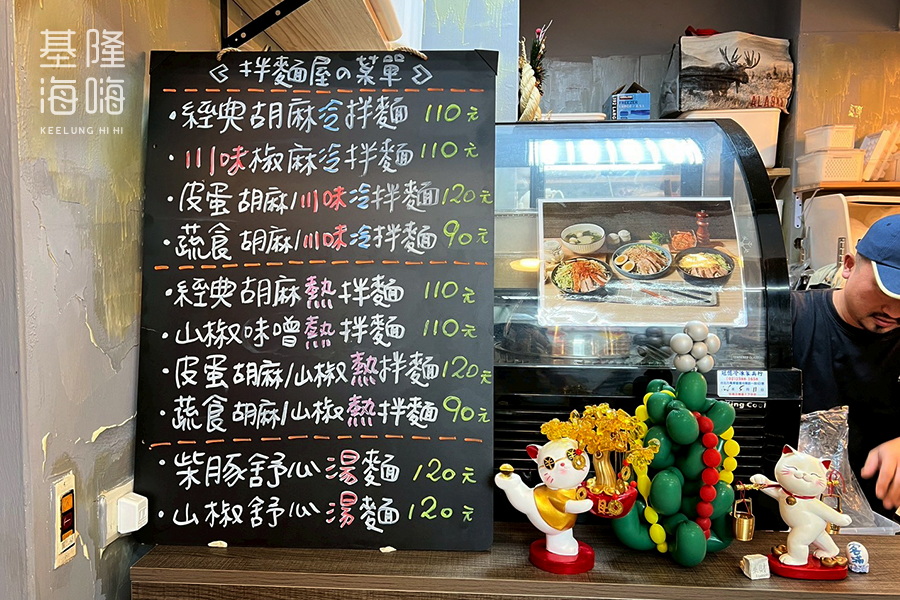 基隆
海嗨
KEELUNG HI HI
< 拌麵屋の菜單 >
・經典胡麻冷拌麵 110元
・川味椒麻冷拌麵 110元
・皮蛋胡麻/川味冷拌麵 120元
・蔬食胡麻/川味冷拌麵 90元
・經典胡麻熱拌麵 110元
・山椒味噌熱拌麵 110元
・皮蛋胡麻/山椒熱拌麵 120元
・蔬食胡麻/山椒熱拌麵 90元
・柴豚舒心湯麵 120元
・山椒舒心湯麵 120元
FREEZER
ALASKA